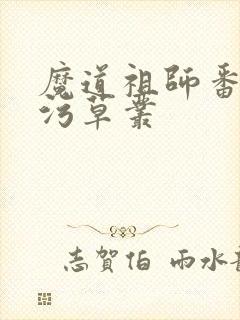 魔道祖師番
污草叢
志賀伯 雨水